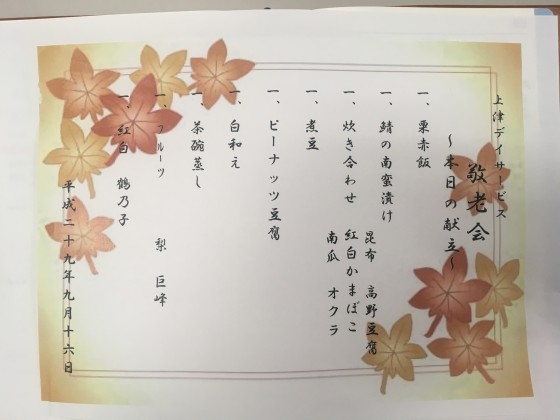 上津デイサービス
敬老会
～本日の献立～
一、栗赤飯
一、鯖の南蛮漬け
一、炊き合わせ 昆布 高野豆腐
紅白かまぼこ
南瓜 オクラ
一、煮豆
一、ピーナッツ豆腐
一、白和え
一、茶碗蒸し
一、フルーツ 梨 巨峰
一、紅白 鶴乃子
平成二十九年九月十六日